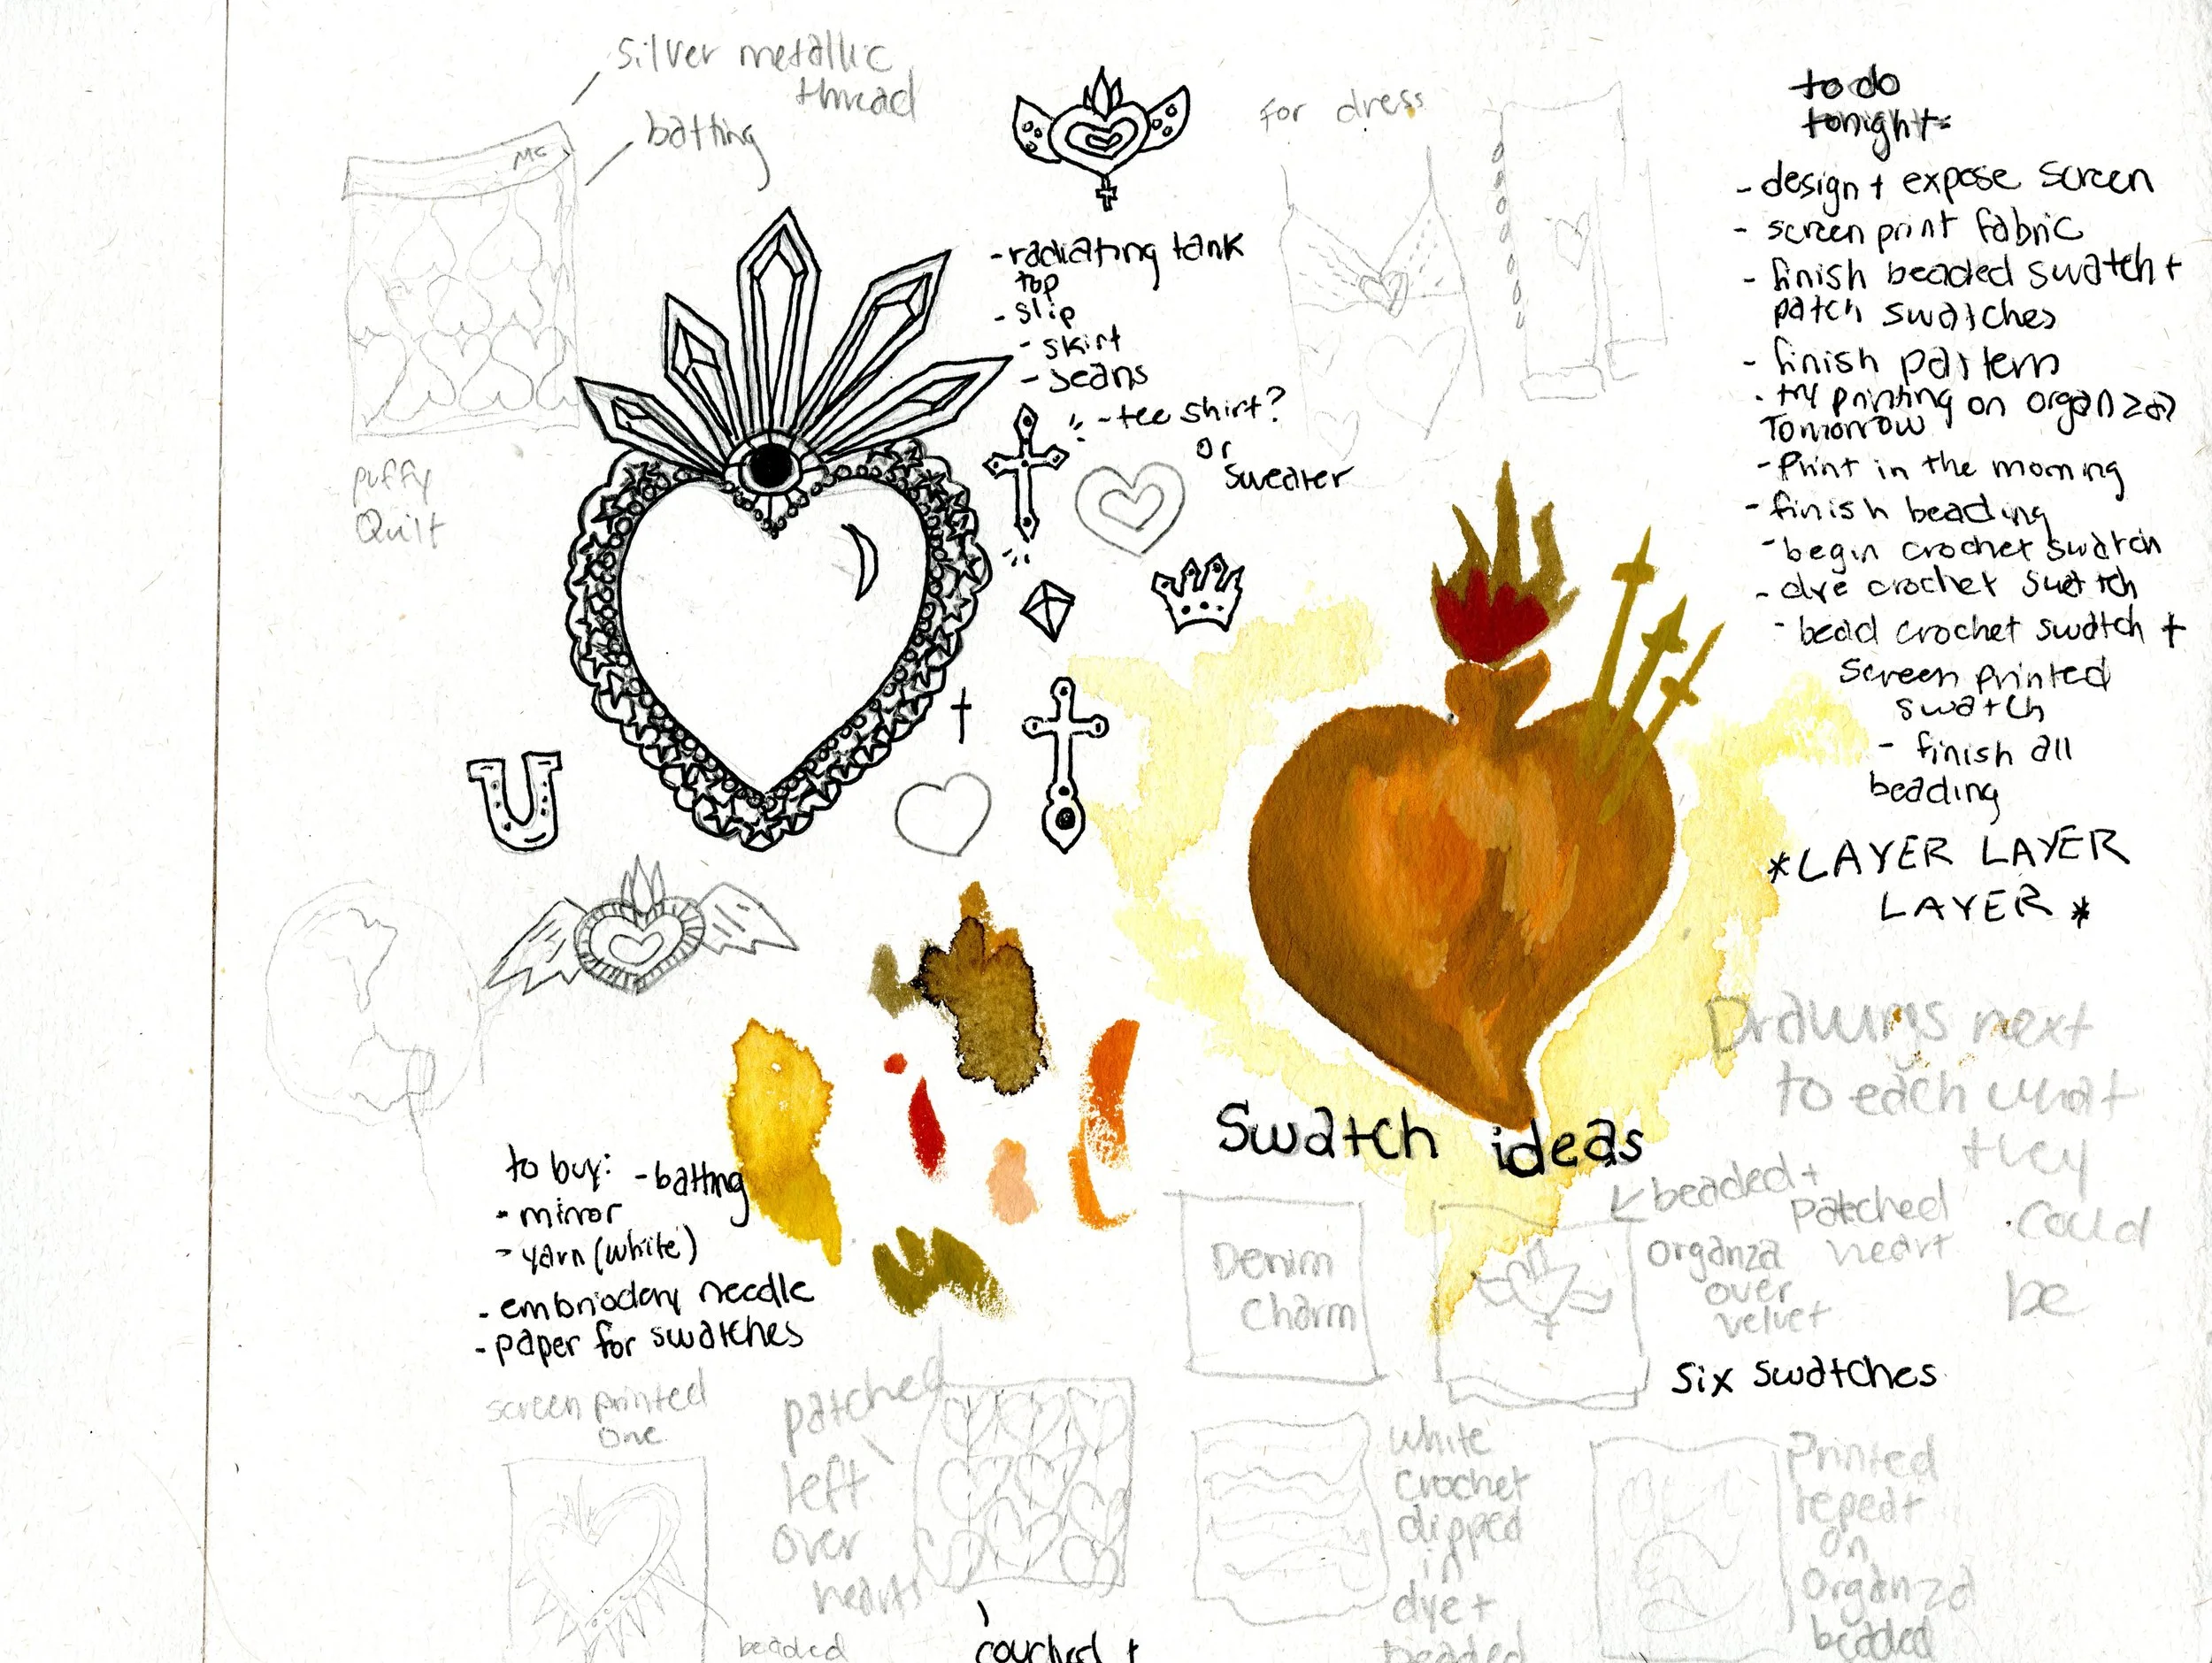 silver metallic
thread
batting
MC
puffy
Quilt
for dress
- radiating tank
top
- slip
- skirt
- jeans
- tee shirt?
or
sweater
to do
tonight:
- design + expose screen
- screen print fabric
- finish beaded swatch +
patch swatches
- finish pattern
- try printing on organza?
Tomorrow
- Print in the morning
- finish beading
- begin crochet swatch
- dye crochet swatch
- bead crochet swatch +
screen printed
swatch
- finish all
beading
*LAYER LAYER
LAYER *
Drawings next
to each what
they
could
be
to buy: - batting
- mirror
- yarn (white)
- embriodery needle
- paper for swatches
Swatch ideas
Denim
Charm
beaded +
Patched
heart
organza
over
velvet
six swatches
screen printed
one
beaded
patched
left
over
hearts
couched +
white
crochet
dipped
in
dye +
beaded
Printed
repeat
on
Organza
beaded